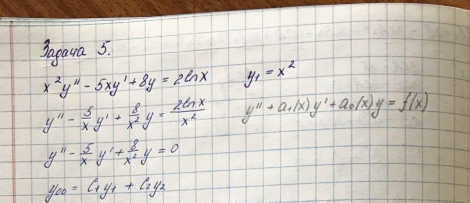 Задача 5.
x² y'' - 5xy' + 8y = 2lnx    y₁ = x²
y'' - 5/x y' + 8/x² y = 2lnx/x²    y'' + a₁(x) y' + a₀(x) y = f(x)
y'' - 5/x y' + 8/x² y = 0
y₀₀ = C₁y₁ + C₂y₂